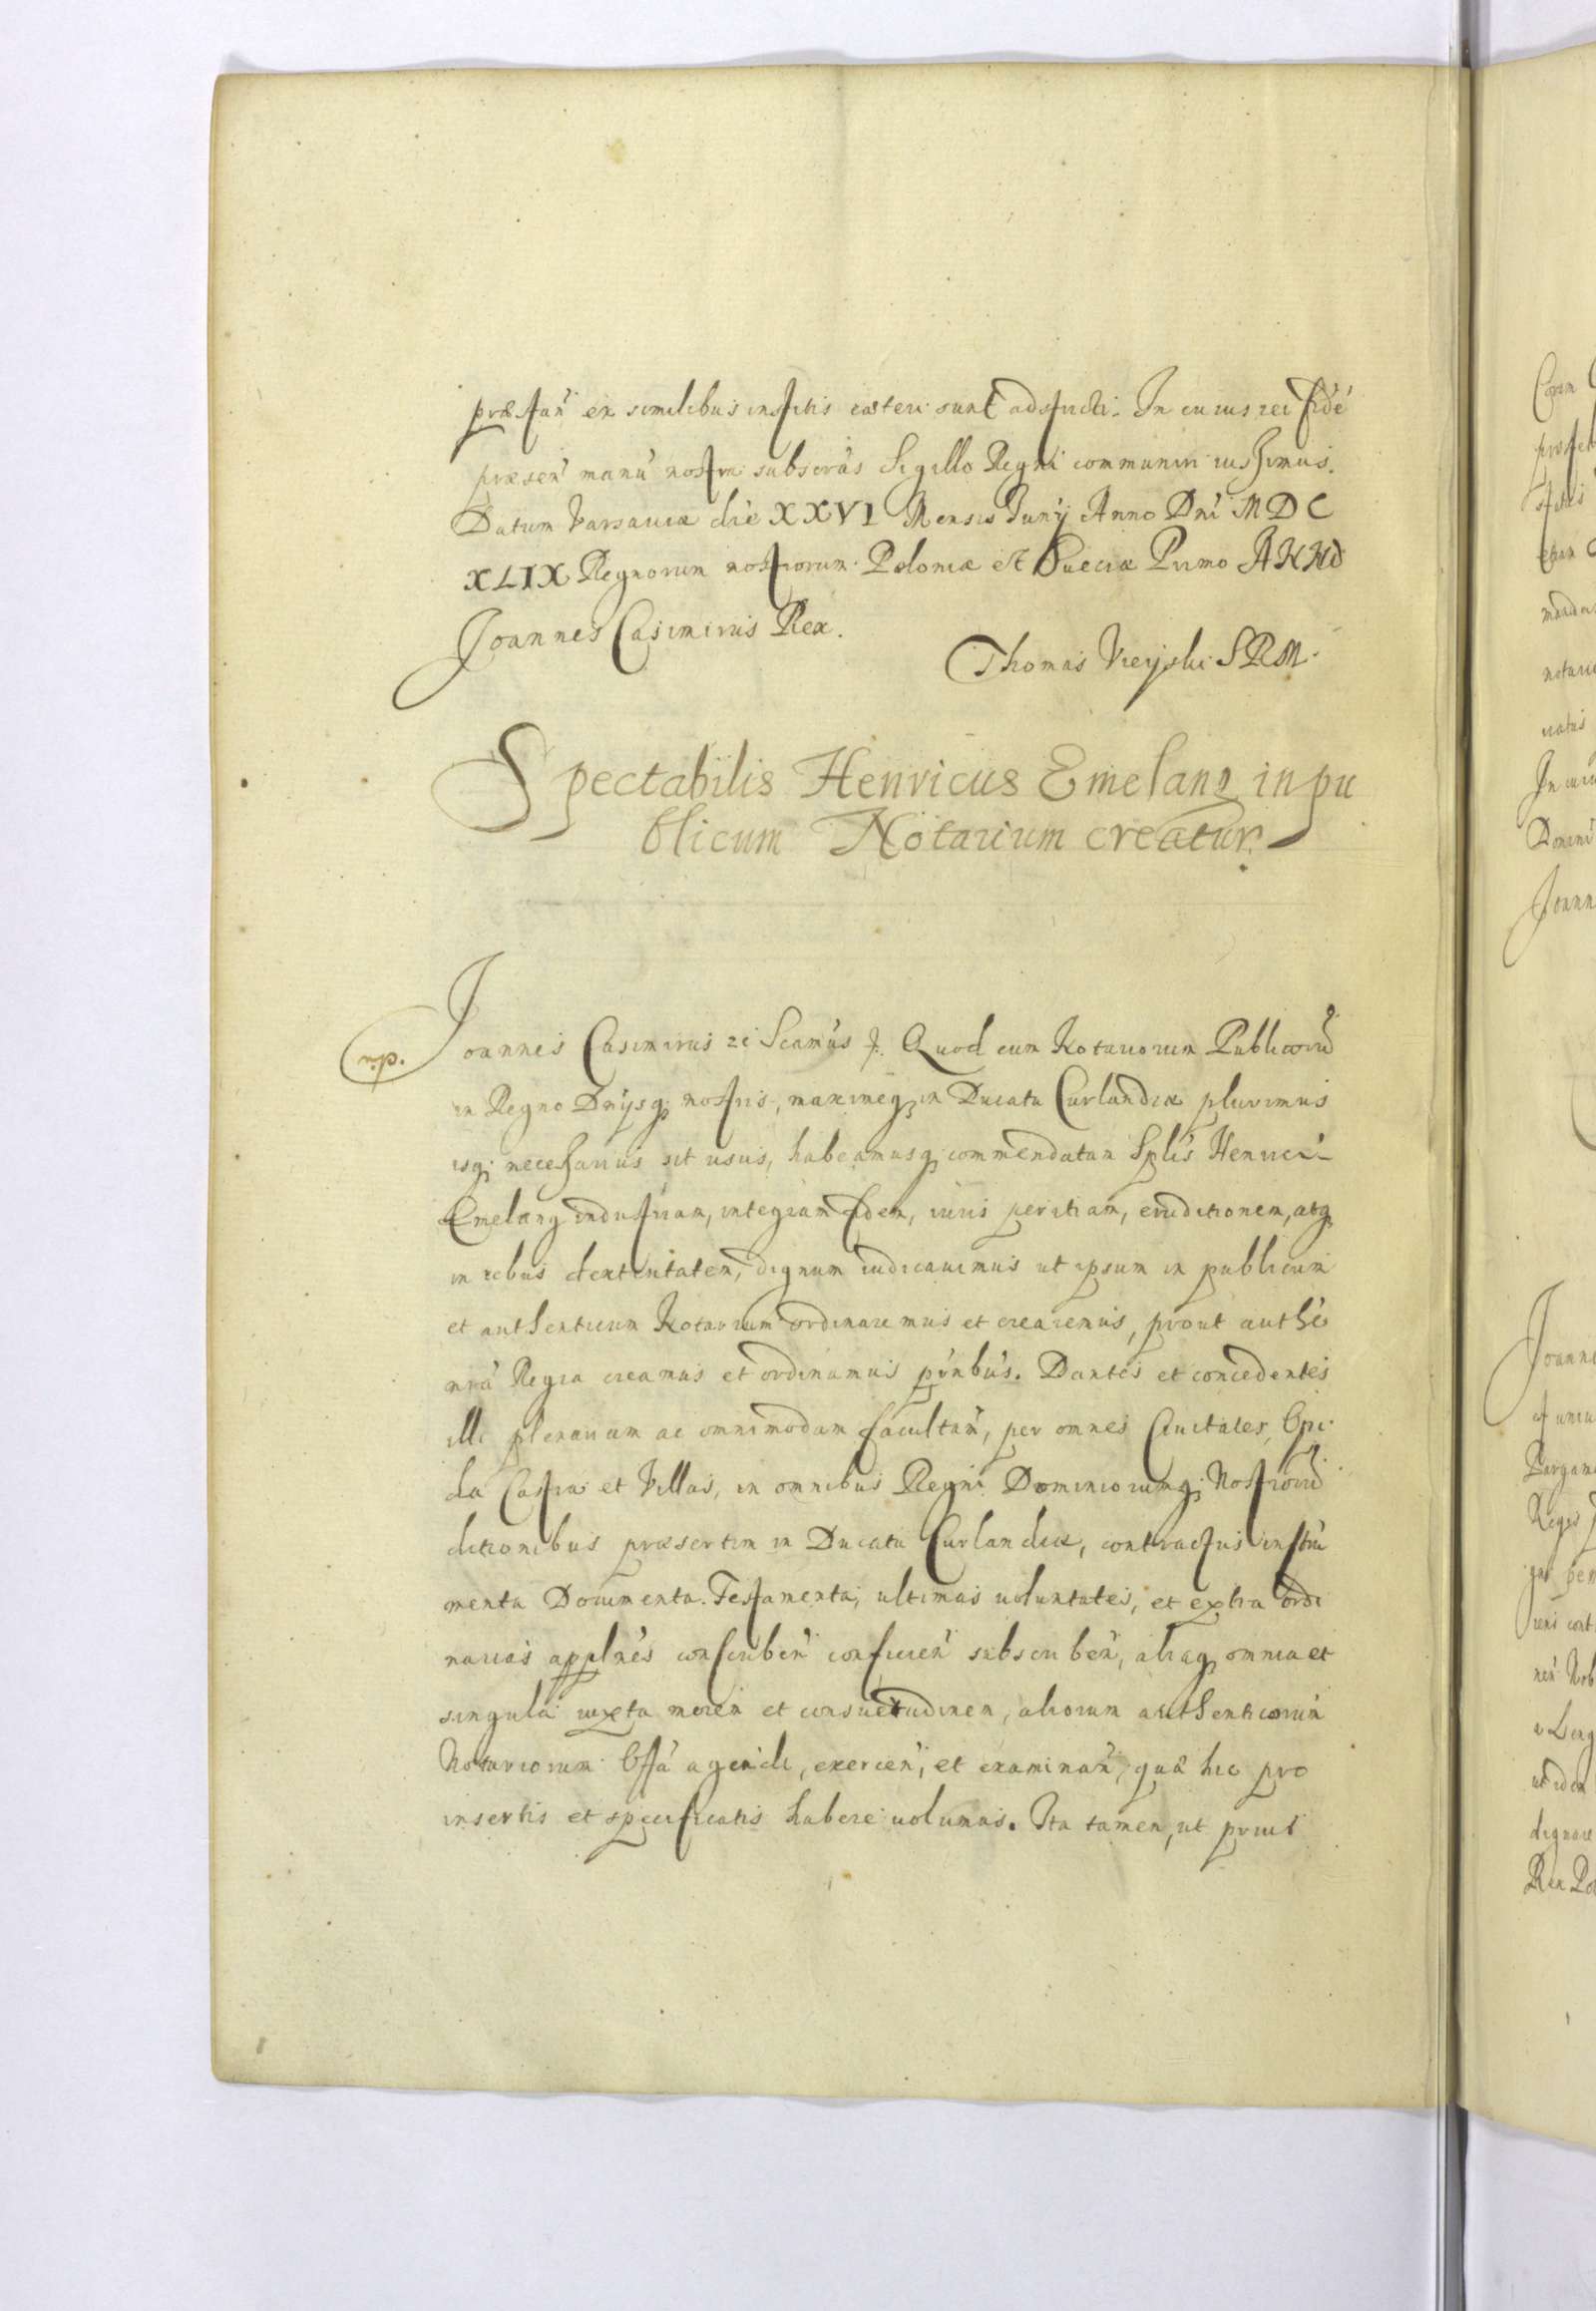 præstan̄ ex similibus institis cæteri sunt adstricti. In cuius rei fidé
præsen̄ manú nostra subscrás Sigillo Regni communiri iussimus.
Datum Varsaviæ die XXVI Mensis Junÿ Anno Dnì MDC
XLIX Regnorum nostrorum Poloniæ et Sueciæ Primo ANNO
Joannes Casimirus Rex.
Thomas Vieyski SRM.
Spectabilis Henricus Emelang in pu
blicum Notarium creatur.
np.
Joannes Casimirus etc Scamús etc. Quod cum Notariorum Publicorú
in Regno Dnÿsq; nostris, maximeq; in Ducatu Curlandiæ plurimus
isq; necessarius sit usus, habeamusq; commendatam Splis Henrici
Emelang industriam, integram fidem, iuris peritiam, eruditionem, atq;
in rebus dexteritatem, dignum iudicavimus ut ipsum in publicum
et authenticum Notarium ordinaremus et crearemus, prout authé
nrá Regia creamus et ordinamus pntbús. Dantes et concedentes
illi plenariam ac omnimodam facultan̄, per omnes Civitates, Opi
da Castra et Villas, in omnibus Regni Dominiorumq; Nostrorú
ditionibus præsertim in Ducatu Curlandiæ, contractus instru
menta Documenta. Testamenta, ultimas voluntates, et extra ordi
narias applnés conscriben̄ conficien̄ subscriben̄, aliaq; omnia et
singula iuxta morem et consuetudinem, aliorum authenticorum
Notariorum Offá agendi, exercen̄, et examinan̄, quæ hic pro
insertis et specificatis habere volumus. Ita tamen, ut prius